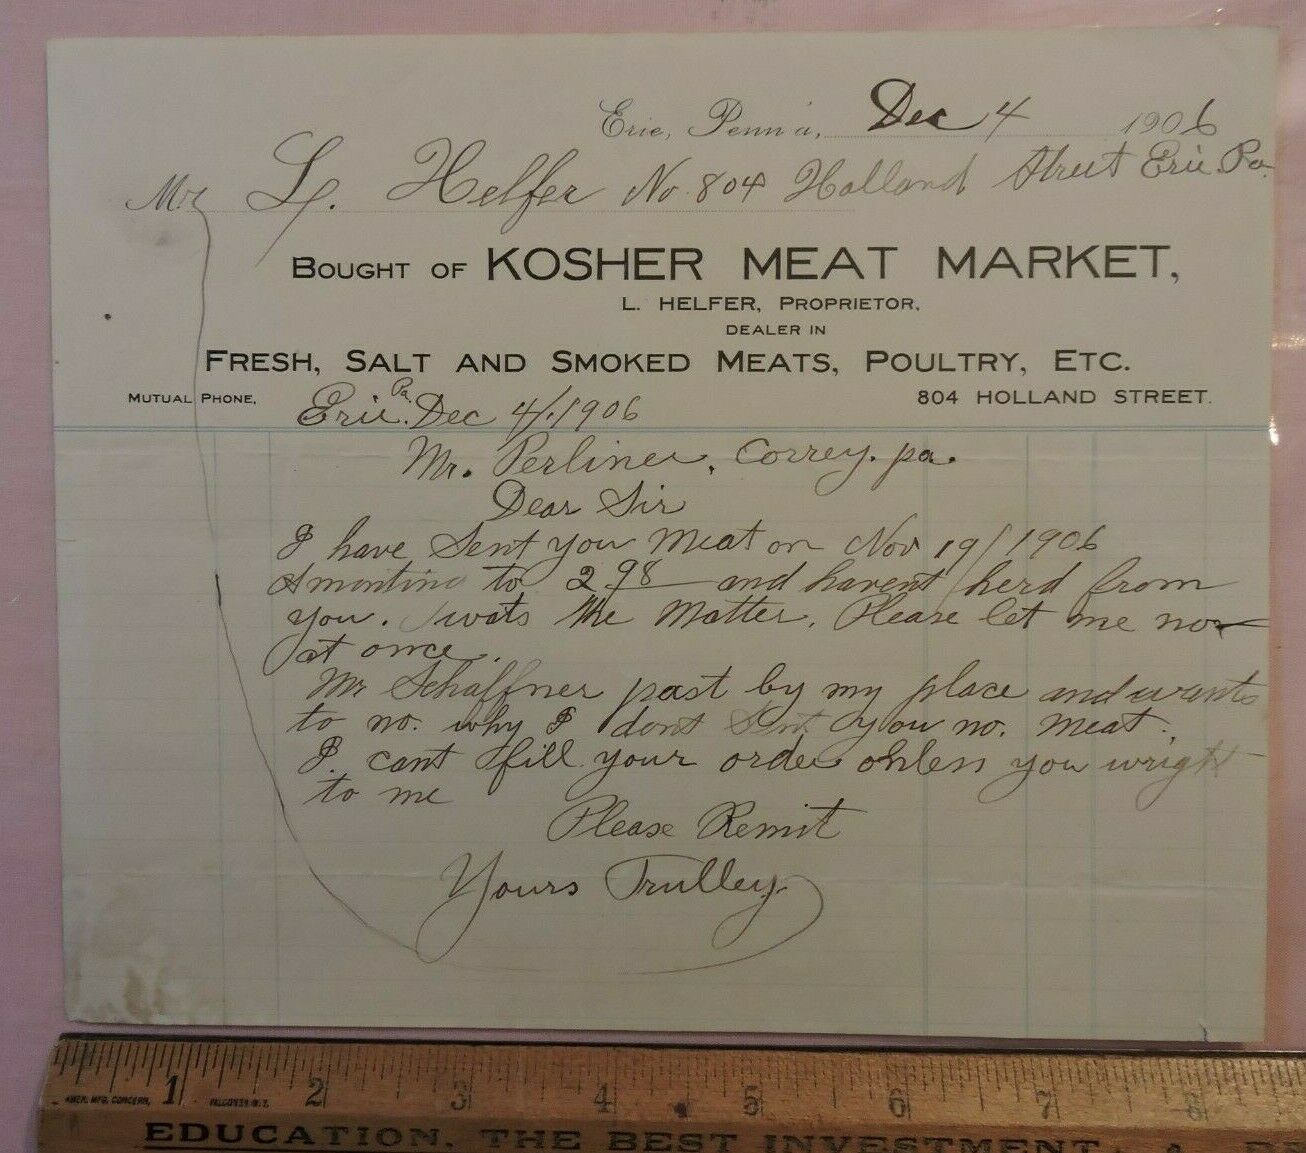 Erie, Penn'a, Dec 4 1906
Mr L. Helfer No. 804 Holland Street Erie. Pa.
BOUGHT OF KOSHER MEAT MARKET,
L. HELFER, PROPRIETOR,
DEALER IN
FRESH, SALT AND SMOKED MEATS, POULTRY, ETC.
MUTUAL PHONE,
804 HOLLAND STREET.
Erie. Pa Dec 4/1906
Mr. Perliner, Correy. pa.
Dear Sir
I have Sent you Meat on Nov 19/1906
Amonting to 2 98 and havent herd from
you. wats the Matter. Please let me no
at once.
Mr Schaffner past by my place and wants
to no. why I dont Sent you no. Meat.
I cant fill your order onless you wright
to me
Please Remit
Yours Trulley
1 2 3 4 5 6 7 8
AMER. MFG. CONCERN,
FALCONER N.Y.
EDUCATION, THE BEST INVESTMENT